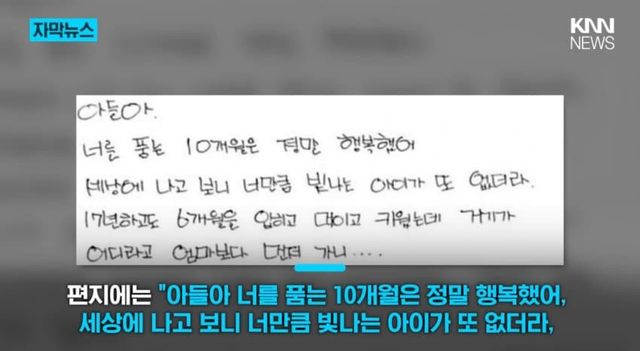 자막뉴스
KNN
NEWS
아들아.
너를 품는 10개월은 정말 행복했어
세상에 나고 보니 너만큼 빛나는 아이가 또 없더라.
17년하고도 6개월을 입히고 먹이고 키웠는데 거기가
어디라고 엄마보다 먼저 가니....
편지에는 "아들아 너를 품는 10개월은 정말 행복했어,
세상에 나고 보니 너만큼 빛나는 아이가 또 없더라,